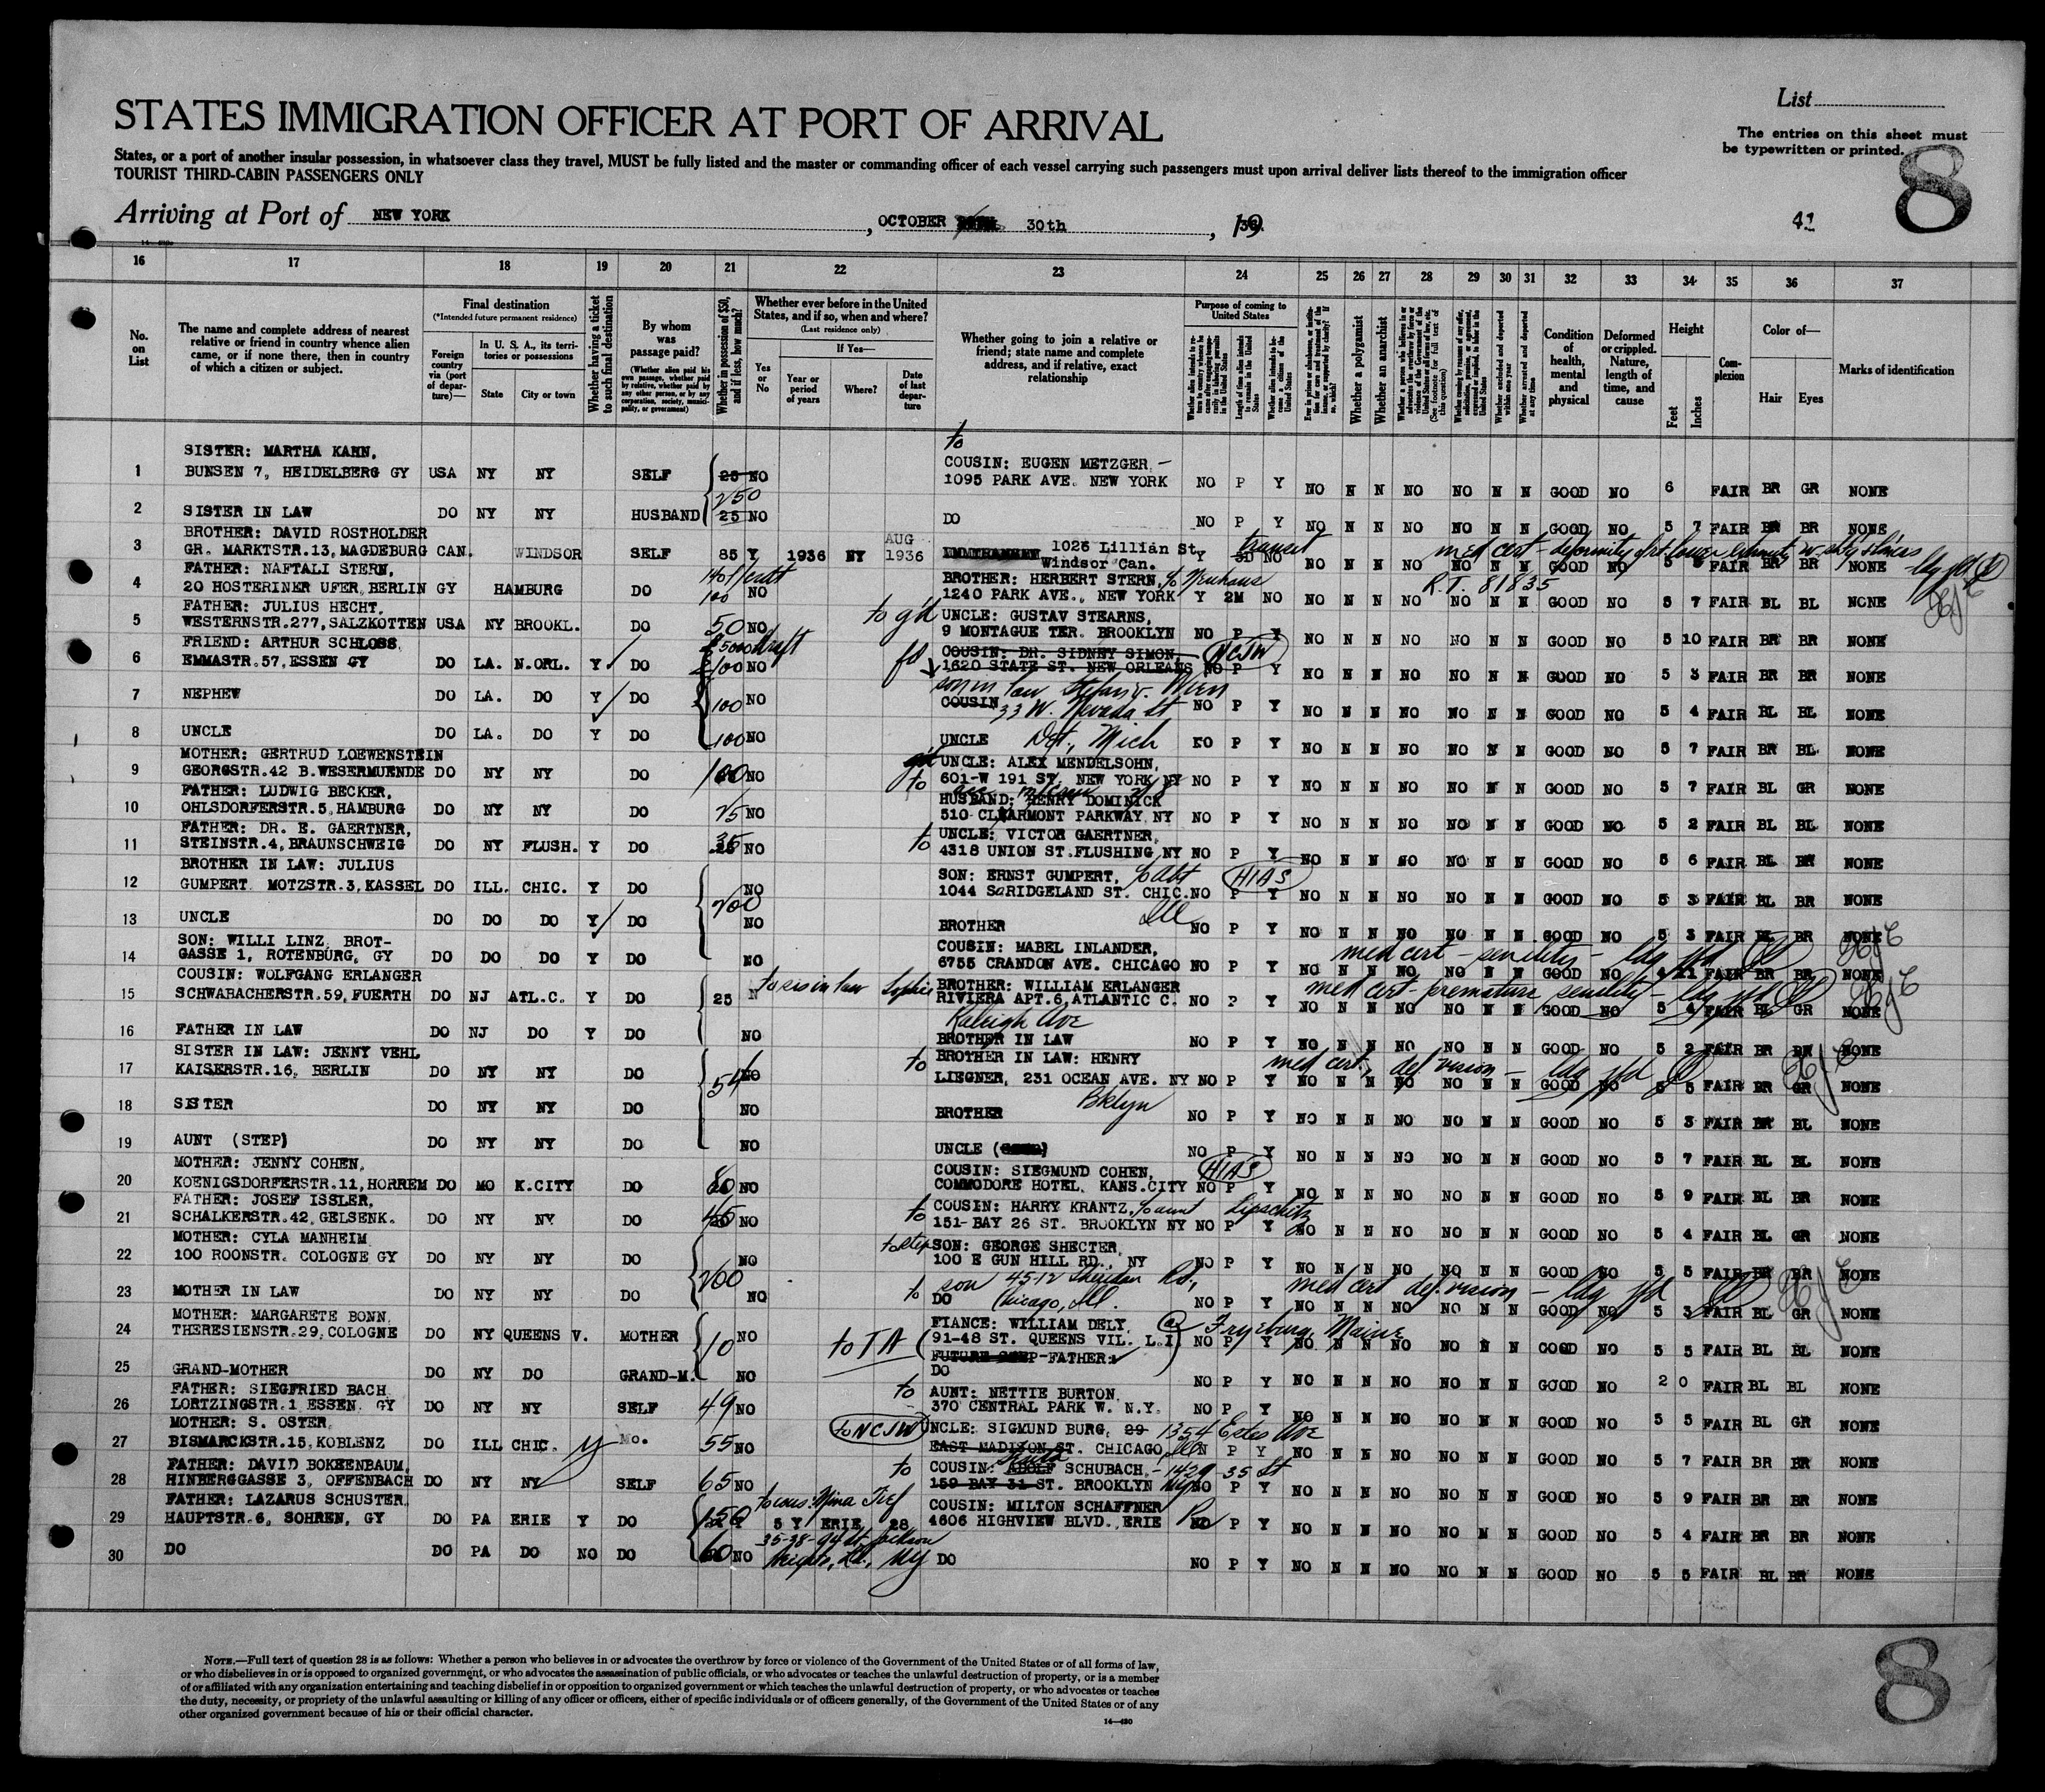 List
STATES IMMIGRATION OFFICER AT PORT OF ARRIVAL
The entries on this sheet must
be typewritten or printed.
8
States, or a port of another insular possession, in whatsoever class they travel, MUST be fully listed and the master or commanding officer of each vessel carrying such passengers must upon arrival deliver lists thereof to the immigration officer
TOURIST THIRD-CABIN PASSENGERS ONLY
Arriving at Port of NEW YORK, OCTOBER 30th, 19
16 17 18 19 20 21 22 23 24 25 26 27 28 29 30 31 32 33 34 35 36 37
No. on List
The name and complete address of nearest relative or friend in country whence alien came, or if none there, then in country of which a citizen or subject.
Final destination
(*Intended future permanent residence)
Foreign country via (port of departure)—
In U. S. A., its territories or possessions
State
City or town
Whether having a ticket to such final destination
By whom was passage paid?
(Whether alien paid his own passage, whether paid by relative, whether paid by any other person, or by any corporation, society, municipality, or government)
Whether in possession of $50, and if less, how much?
Whether ever before in the United States, and if so, when and where?
(Last residence only)
Yes or No
If Yes—
Year or period of years
Where?
Date of last departure
Whether going to join a relative or friend; state name and complete address, and if relative, exact relationship
Purpose of coming to United States
Whether a polygamist
Whether an anarchist
Condition of health, mental and physical
Deformed or crippled. Nature, length of time, and cause
Height
Feet
Inches
Complexion
Color of—
Hair
Eyes
Marks of identification
SISTER: MARTHA KAHN, to
1 BUNSEN 7, HEIDELBERG GY USA NY NY SELF 25 NO COUSIN: EUGEN METZGER – 1095 PARK AVE. NEW YORK NO P Y NO N N NO NO N N GOOD NO 6 FAIR BR GR NONE
250
2 SISTER IN LAW DO NY NY HUSBAND 25 NO DO NO P Y NO N N NO NO N N GOOD NO 5 7 FAIR BR BR NONE
BROTHER: DAVID ROSTHOLDER
3 GR. MARKTSTR.13, MAGDEBURG CAN. WINDSOR SELF 85 Y 1936 NY AUG 1936 1026 Lillian St Windsor Can. Y transit NO NO N N NO NO N N GOOD NO 5 FAIR BR BR NONE
med cert - deformity
FATHER: NAFTALI STERN,
4 20 HOSTERINKER UFER, BERLIN GY HAMBURG DO 100 NO BROTHER: HERBERT STERN, c/o Neuhaus 1240 PARK AVE., NEW YORK Y 2M NO NO N N NO NO N N GOOD NO 5 7 FAIR BL BL NONE
R.T. 81835
FATHER: JULIUS HECHT,
5 WESTERNSTR.277, SALZKOTTEN USA NY BROOKL. DO 50 NO UNCLE: GUSTAV STEARNS, 9 MONTAGUE TER. BROOKLYN NO P Y NO N N NO NO N N GOOD NO 5 10 FAIR BR BR NONE
FRIEND: ARTHUR SCHLOSS
6 EMMASTR.57, ESSEN GY DO LA. N.ORL. Y DO 100 NO COUSIN: DR. SIDNEY SIMON, 1620 STATE ST. NEW ORLEANS NCJW NO P Y NO N N NO NO N N GOOD NO 5 3 FAIR BR BR NONE
son in law Stefan v. Wien
7 NEPHEW DO LA. DO Y DO 100 NO COUSIN 33 W. Nevada St NO P Y NO N N NO NO N N GOOD NO 5 4 FAIR BL BL NONE
8 UNCLE DO LA. DO Y DO 100 NO UNCLE Det, Mich NO P Y NO N N NO NO N N GOOD NO 5 7 FAIR BR BL NONE
MOTHER: GERTRUD LOEWENSTEIN
9 GEORGSTR.42 B.WESERMUENDE DO NY NY DO 100 NO to UNCLE: ALEX MENDELSOHN, 601-W 191 ST. NEW YORK NY NO P Y NO N N NO NO N N GOOD NO 5 7 FAIR BL GR NONE
FATHER: LUDWIG BECKER,
10 OHLSDORFERSTR.5, HAMBURG DO NY NY DO 25 NO HUSBAND: HENRY DOMINICK 510 CLEARMONT PARKWAY NY NO P Y NO N N NO NO N N GOOD NO 5 2 FAIR BL BL NONE
FATHER: DR. E. GAERTNER,
11 STEINSTR.4, BRAUNSCHWEIG DO NY FLUSH. Y DO 35 NO to UNCLE: VICTOR GAERTNER, 4318 UNION ST. FLUSHING NY NO P Y NO N N NO NO N N GOOD NO 5 6 FAIR BL BR NONE
BROTHER IN LAW: JULIUS
12 GUMPERT MOTZSTR.3, KASSEL DO ILL. CHIC. Y DO NO SON: ERNST GUMPERT, 1044 SORIDGELAND ST. CHIC. HIAS NO P Y NO N N NO NO N N GOOD NO 5 3 FAIR BL BR NONE
200
13 UNCLE DO DO DO Y DO NO BROTHER Ill NO P Y NO N N NO NO N N GOOD NO 5 3 FAIR BL BR NONE
SON: WILLI LINZ, BROT-
14 GASSE 1, ROTENBURG, GY DO DO DO Y DO NO COUSIN: MABEL INLANDER, 6755 CRANDON AVE. CHICAGO NO P Y NO N N NO NO N N GOOD NO 4 11 FAIR BR BR NONE
med cert - senility
COUSIN: WOLFGANG ERLANGER
15 SCHWABACHERSTR.59, FUERTH DO NJ ATL.C. Y DO 25 N to sis in law Sophie BROTHER: WILLIAM ERLANGER RIVIERA APT.6, ATLANTIC C. NO P Y NO N N NO NO N N GOOD NO 5 4 FAIR BL GR NONE
med cert - premature senility
Raleigh Ave
16 FATHER IN LAW DO NJ DO Y DO NO BROTHER IN LAW NO P Y NO N N NO NO N N GOOD NO 5 2 FAIR BR BR NONE
SISTER IN LAW: JENNY VEHL
17 KAISERSTR.16, BERLIN DO NY NY DO NO to BROTHER IN LAW: HENRY LIEGNER, 231 OCEAN AVE. NY NO P Y NO N N NO NO N N GOOD NO 5 5 FAIR BR GR NONE
54
med cert, def vision
Bklyn
18 SISTER DO NY NY DO NO BROTHER NO P Y NO N N NO NO N N GOOD NO 5 3 FAIR BR BL NONE
19 AUNT (STEP) DO NY NY DO NO UNCLE NO P Y NO N N NO NO N N GOOD NO 5 7 FAIR BL BL NONE
MOTHER: JENNY COHEN,
20 KOENIGSDORFERSTR.11, HORREM DO MO K.CITY DO 80 NO COUSIN: SIEGMUND COHEN, COMMODORE HOTEL, KANS.CITY HIAS NO P Y NO N N NO NO N N GOOD NO 5 9 FAIR BL BR NONE
FATHER: JOSEF ISSLER,
21 SCHALKERSTR.42, GELSENK. DO NY NY DO 45 NO to COUSIN: HARRY KRANTZ, c/o aunt Lipschitz 151-BAY 26 ST. BROOKLYN NY NO P Y NO N N NO NO N N GOOD NO 5 4 FAIR BL GR NONE
MOTHER: CYLA MANHEIM
22 100 ROONSTR. COLOGNE GY DO NY NY DO NO to step SON: GEORGE SHECTER, 100 E GUN HILL RD., NY NO P Y NO N N NO NO N N GOOD NO 5 5 FAIR BR BR NONE
200
23 MOTHER IN LAW DO NY NY DO NO to son 45-12 Sheridan Rd., Chicago, Ill. DO NO P Y NO N N NO NO N N GOOD NO 5 3 FAIR BL GR NONE
med cert def. vision
MOTHER: MARGARETE BONN,
24 THERESIENSTR.29, COLOGNE DO NY QUEENS V. MOTHER 10 NO to TA FIANCE: WILLIAM DELY, 91-48 ST. QUEENS VIL. L.I. Fryeburg, Maine NO P Y NO N N NO NO N N GOOD NO 5 5 FAIR BL BL NONE
FUTURE STEP-FATHER:
25 GRAND-MOTHER DO NY DO GRAND-M. NO DO NO P Y NO N N NO NO N N GOOD NO 2 0 FAIR BL BL NONE
FATHER: SIEGFRIED BACH
26 LORTZINGSTR.1 ESSEN GY DO NY NY SELF 49 NO to AUNT: NETTIE BURTON, 370 CENTRAL PARK W. N.Y. NO P Y NO N N NO NO N N GOOD NO 5 5 FAIR BL GR NONE
MOTHER: S. OSTER,
27 BISMARCKSTR.15, KOBLENZ DO ILL CHIC. 55 NO to NCJW UNCLE: SIGMUND BURG, 29 EAST MADISON ST. CHICAGO 1354 Estes Ave P Y NO N N NO NO N N GOOD NO 5 7 FAIR BR BR NONE
FATHER: DAVID BOKEENBAUM,
28 HINBERGGASSE 3, OFFENBACH DO NY NY SELF 65 NO to COUSIN: SCHUBACH – 1429 35 St 159 BAY 31 ST. BROOKLYN NO P Y NO N N NO NO N N GOOD NO 5 9 FAIR BR BR NONE
FATHER: LAZARUS SCHUSTER,
29 HAUPTSTR.6, SOHREN, GY DO PA ERIE Y DO 150 5 Y ERIE 28 COUSIN: MILTON SCHAFFNER 4606 HIGHVIEW BLVD., ERIE Pa NO P Y NO N N NO NO N N GOOD NO 5 4 FAIR BR BR NONE
30 DO DO PA DO NO DO 60 NO DO NO P Y NO N N NO NO N N GOOD NO 5 5 FAIR BL BR NONE
NOTE.—Full text of question 28 is as follows: Whether a person who believes in or advocates the overthrow by force or violence of the Government of the United States or of all forms of law,
or who disbelieves in or is opposed to organized government, or who advocates the assassination of public officials, or who advocates or teaches the unlawful destruction of property, or is a member
of or affiliated with any organization entertaining and teaching disbelief in or opposition to organized government or which teaches the unlawful destruction of property, or who advocates or teaches
the duty, necessity, or propriety of the unlawful assaulting or killing of any officer or officers, either of specific individuals or of officers generally, of the Government of the United States or of any
other organized government because of his or their official character.
14—430
8